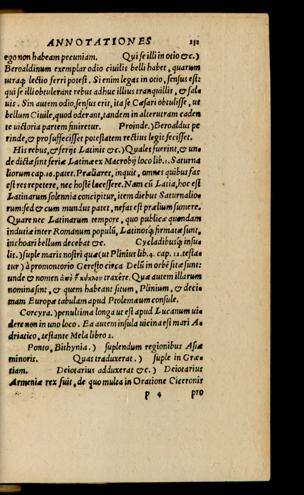 ANNOTATIONES 231
ego non habeam pecuniam. Qui se illi in otio &c.)
Beroaldinum exemplar odio ciuilis belli habet, quarum
utraq; lectio ferri potest. Si enim legas in otio, sensus est:
qui se illi obtulerant rebus adhuc illius tranquillis, & sal
uis. Sin autem odio, sensus erit, ita se Cæsari obtulisse, ut
bellum Ciuile, quod oderant, tandem in alterutram caden
te uictoria partem finiretur. Proinde.) Beroaldus pe
rinde, & pro suffecisset potestatem rectius legis fecisset.
His rebus, & ferijs Latinis &c.) Quales fuerint, & un-
de dictæ sint feriæ Latinæ ex Macrobij loco lib. 1. Saturna
liorum cap. 16. patet. Præliares, inquit, omnes quibus fas
est res repetere, nec hostē lacessere. Nam cū Latia, hoc est
Latinarum solennia concipitur, item diebus Saturnalio
rum sed & cum mundus patet, nefas est prælium sumere.
Quare nec Latinarum tempore, quo publicæ quondam
induciæ inter Romanum populū, Latinosq; firmatæ sunt,
inchoari bellum decebat &c. Cycladibusq; insu
lis.) suple maris nostri quæ (ut Plinius lib. 4. cap. 12. testa
tur) à promontorio Geresto circa Delū in orbē sitæ sunt:
unde & nomen ἀπὸ traxere. Quæ autem illarum
nomina sint, & quem habeant situm, Plinium, & deci
mam Europæ tabulam apud Ptolemæum consule.
Corcyra.) penultima longa ut est apud Lucanum ui
dere non in uno loco. Ea autem insula uicina est mari A
driatico, testante Mela libro 2.
Ponto, Bithynia.) suplendum regionibus Asiæ
minoris. Quas traduxerat.) suple in Græ
tiam. Deiotarius adduxerat &c.) Deiotarius
Armeniæ rex fuit, de quo multa in Oratione Ciceronis
P 4 pro